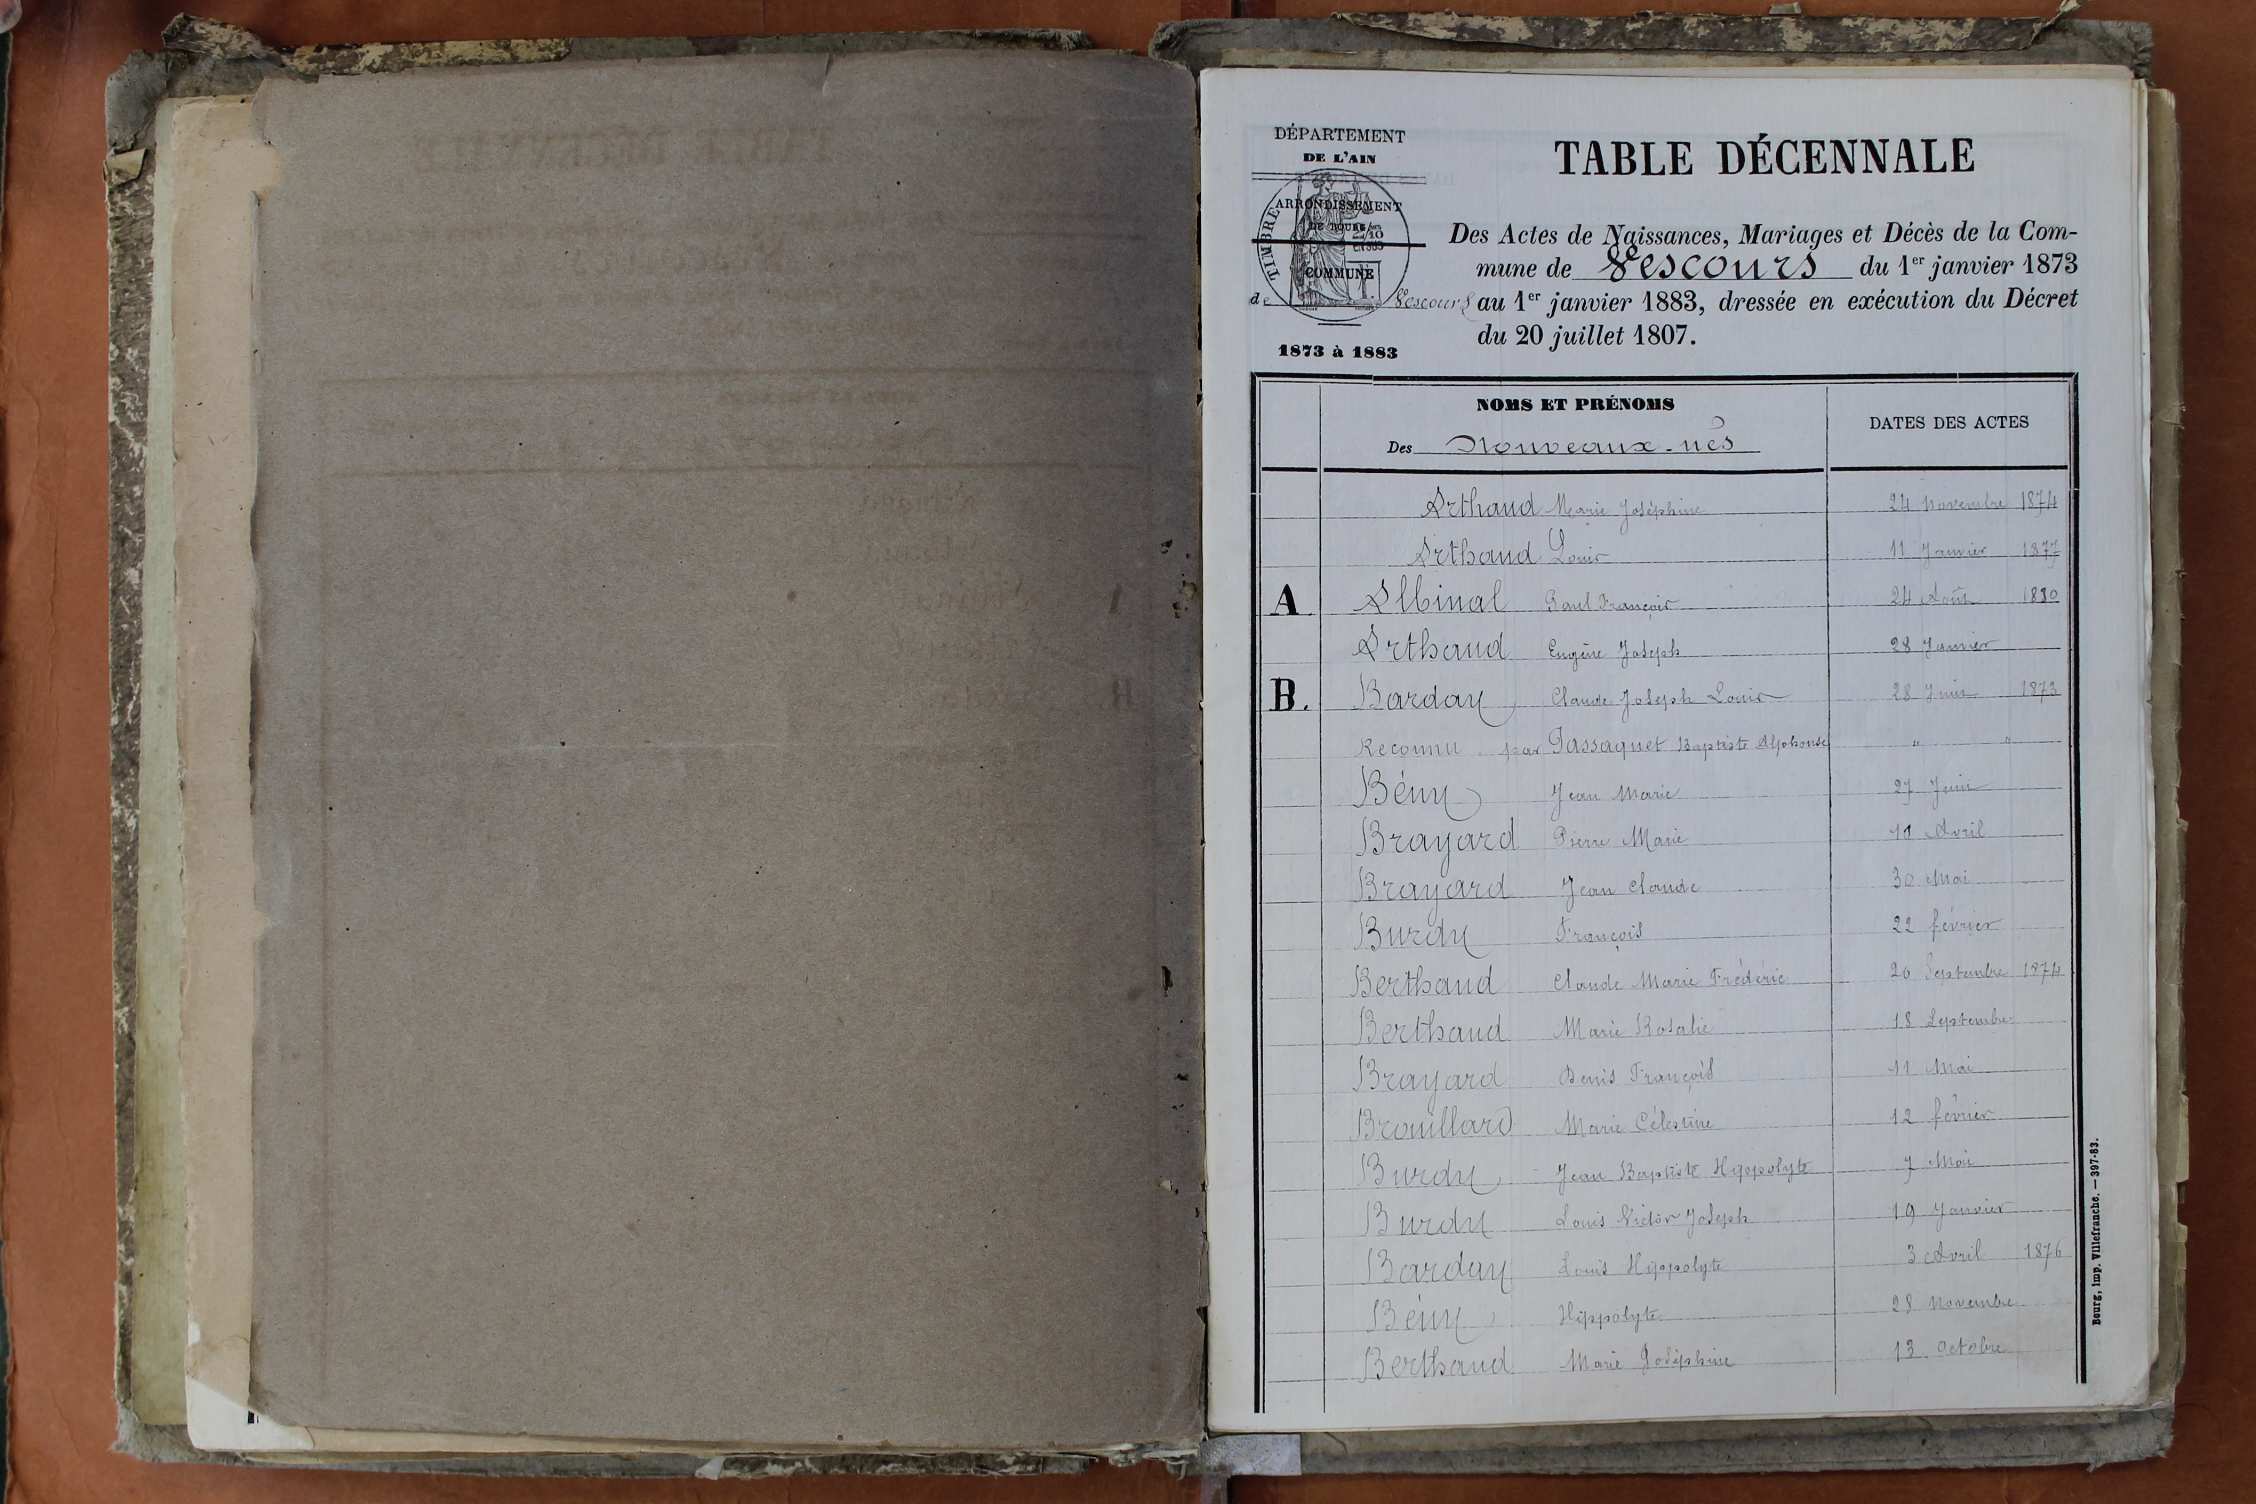 DÉPARTEMENT
DE L'AIN
TIMBRE
ARRONDISSEMENT
DE BOURG
2/10
EN SUS
COMMUNE
de Vescours
1873 à 1883
TABLE DÉCENNALE
Des Actes de Naissances, Mariages et Décès de la Com-
mune de Vescours du 1er janvier 1873
au 1er janvier 1883, dressée en exécution du Décret
du 20 juillet 1807.
NOMS ET PRÉNOMS
Des Nouveaux-nés
DATES DES ACTES
Arthaud Marie Joséphine 24 novembre 1874
Arthaud Louis 11 Janvier 1877
A Albinal Paul François 24 Août 1880
Arthaud Eugène Joseph 28 Janvier
B. Barday Claude Joseph Louis 28 Juin 1873
Reconnu par Passaquet Baptiste Alphonse " "
Bény Jean Marie 27 Juin
Brayard Pierre Marie 10 Avril
Brayard Jean Claude 30 Mai
Burdy François 22 février
Berthaud Claude Marie Frédéric 20 Septembre 1874
Berthaud Marie Rosalie 18 Septembre
Brayard Denis François 11 Mai
Brouillard Marie Célestine 12 février
Burdy Jean Baptiste Hippolyte 7 Mai
Burdy Louis Victor Joseph 19 Janvier
Barday Louis Hippolyte 3 Avril 1876
Bény Hippolyte 28 novembre
Berthaud Marie Joséphine 13 octobre
Bourg, imp. Villefranche. — 397-83.